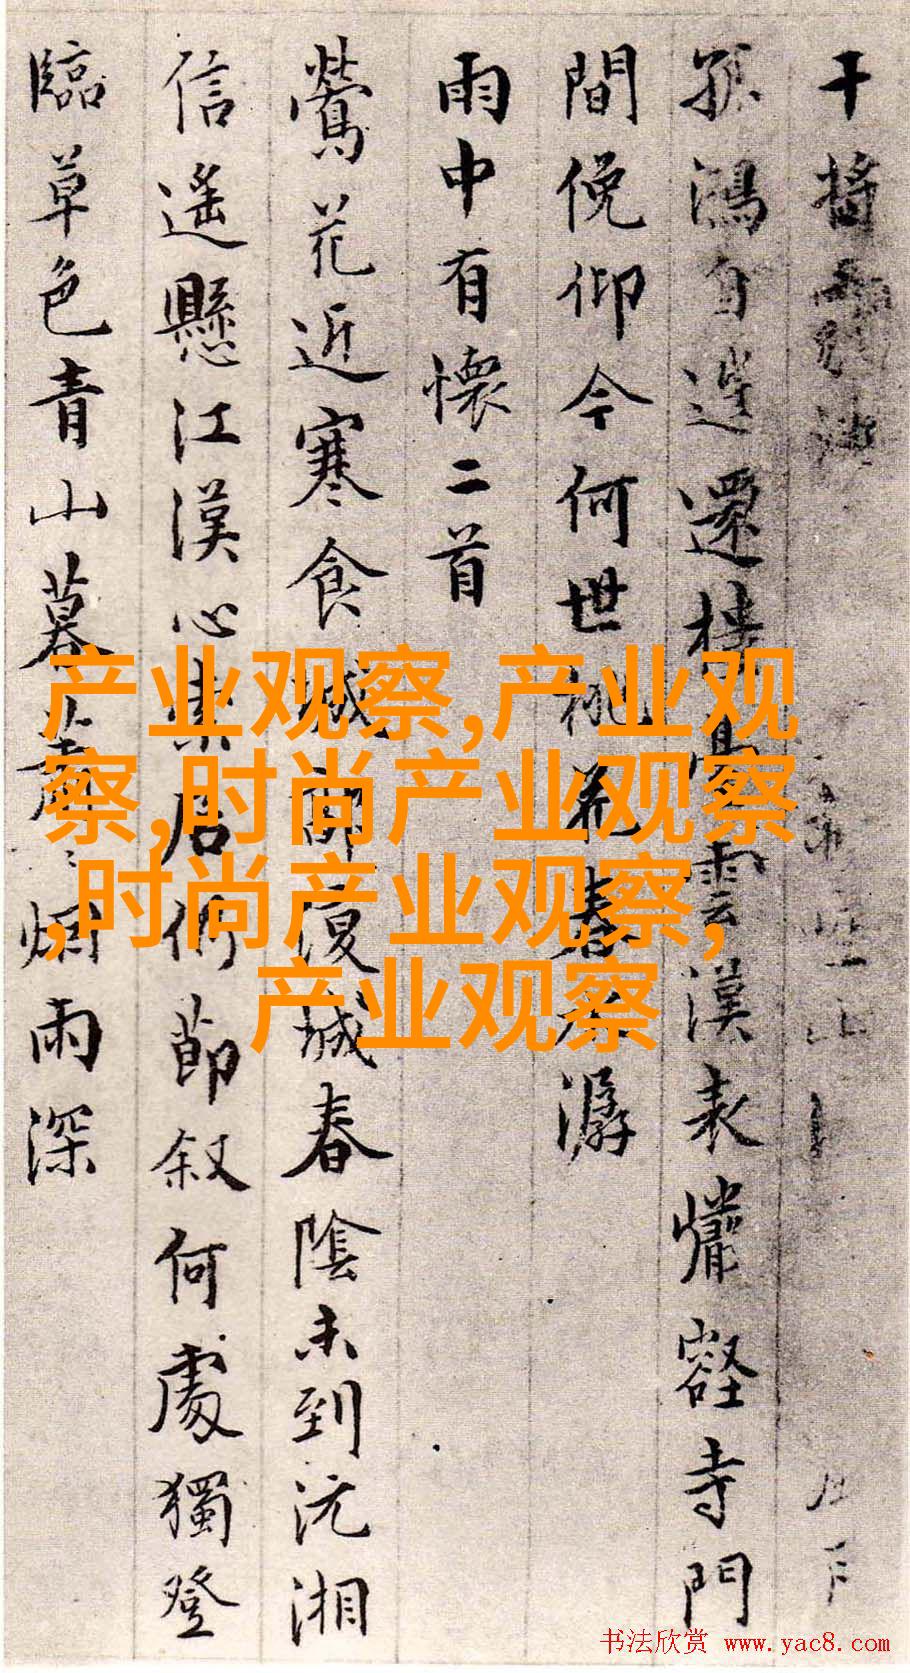 干將
孤鴻自還雲漢表壑寺門
間俛仰今何世桃花春潺
雨中有懷二首
鶯花近寒食城郭復城春陰未到沅湘
信遙懸江漢心索居節叙何處獨登
臨草色青山暮萋〻烟雨深
产业观察,产业观
察,时尚产业观察
,时尚产业观察,
产业观察
书法欣赏 www.yac8.com